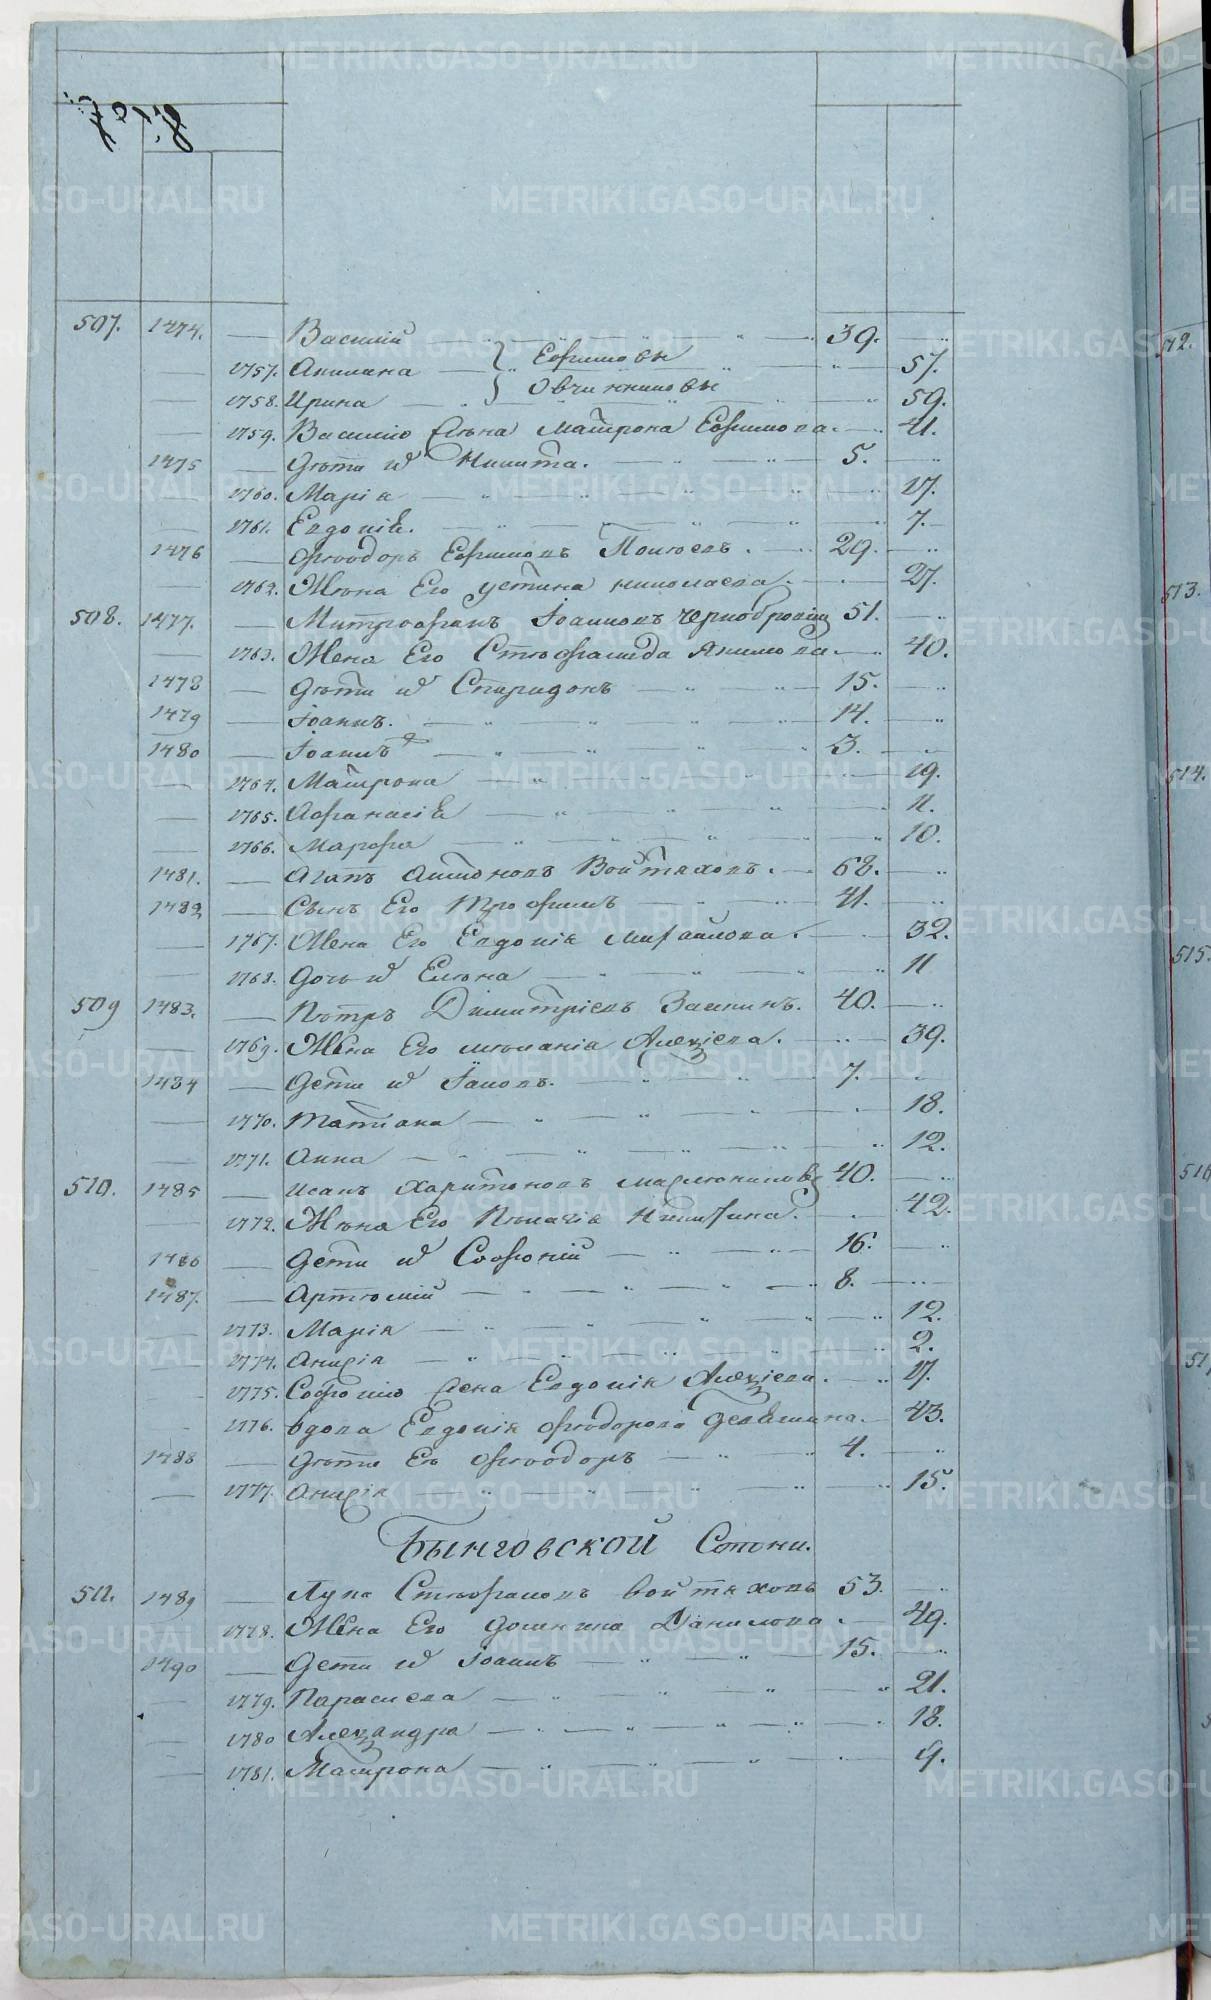 METRIKI.GASO-URAL.RU
507. 1474. — Василий — 39. —
— 1757. Акилина } Ефимовы — 57.
— 1758. Ирина } Овчинниковы — 59.
— 1759. Василию жѣна Матрона Ефимова. — 41.
1475 — Дѣти их Никита. — 5. —
— 1760. Марія — 17.
— 1761. Евдокія. — 7.
1476 — Ѳеодоръ Ефимовъ — 29. —
— 1762. Жѣна Его Устина Николаева. — 27.
508. 1477. — Митрофанъ Іоанновъ Чернобровинъ 51. —
— 1763. Жена Его Стѣфанида Акимова — 40.
1478 — Дѣти их Спиридонъ — 15. —
1479 — Іоаннъ. — 14. —
1480 — Іоаннъ — 3. —
— 1764. Матрона — 19.
— 1765. Афанасія — 11.
— 1766. Марфа — 10.
1481. — Агапъ Антоновъ Войтяховъ. — 68. —
1482 — Сынъ Его Трофимъ — 41. —
— 1767. Жена Его Евдокія Михайлова. — 32.
— 1768. Дочь их Елѣна — 11
509 1483. — Пѣтръ Димитріевъ Заикинъ. 40. —
— 1769. Жена Его Мѣланія Алеѯіева. — 39.
1484 — Дети их Іаковъ. — 7. —
— 1770. Татіана — 18.
— 1771. Анна — 12.
510. 1485 — Исакъ Харитоновъ 40. —
— 1772. Жѣна Его Пѣлагія Никитина. — 42.
1486 — Дети их Софоній — 16. —
1487. — Артѣмій — 8. —
— 1773. Марія — 12.
— 1774. Анисія — 2.
— 1775. Софонию жена Евдокія Алеѯіева. — 17.
— 1776. вдова Евдокія Ѳеодорова — 43.
1488 — Дѣти Ея Ѳеодоръ — 4. —
— 1777. Анисія — 15.
Бынговской Сотни.
511. 1489 — Лука Стѣфановъ Войтяховъ 53. —
— 1778. Жена Его Домникия Данилова — 49.
1490 — Дети их Іоаннъ — 15. —
— 1779. Параскева — 21.
— 1780 Алеѯандра — 18.
— 1781. Матрона — 9.
512.
513.
514.
515.
516